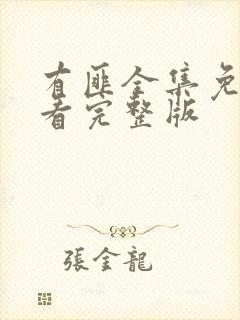 有匪全集免
看完整版
張金龍